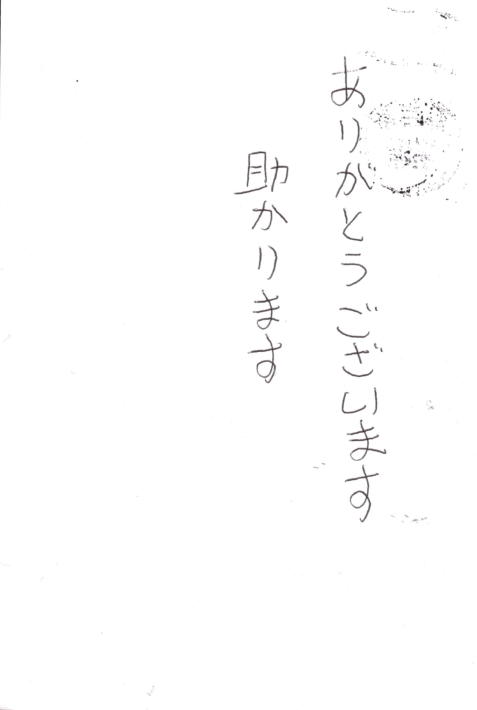 ありがとうございます
助かります